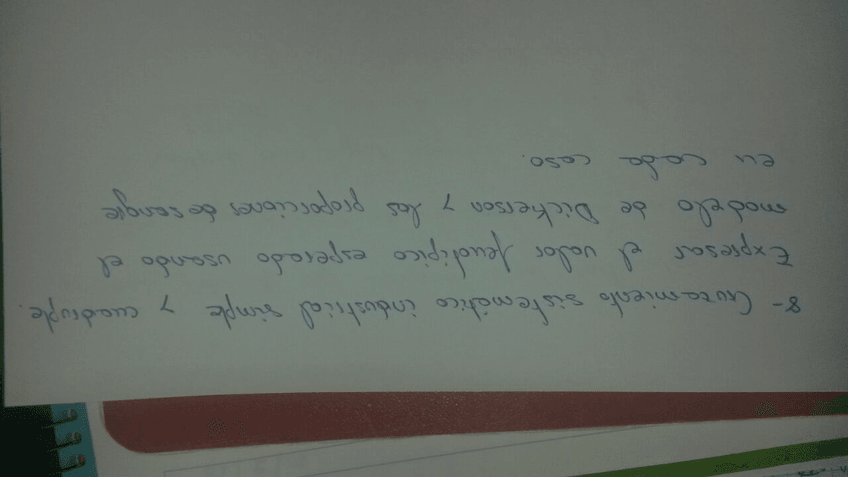 8- Cruzamiento sistemático industrial simple y cuadruple.
Expresar el valor fenotípico esperado usando el
modelo de Dickerson y las proporciones de sangre
en cada caso.